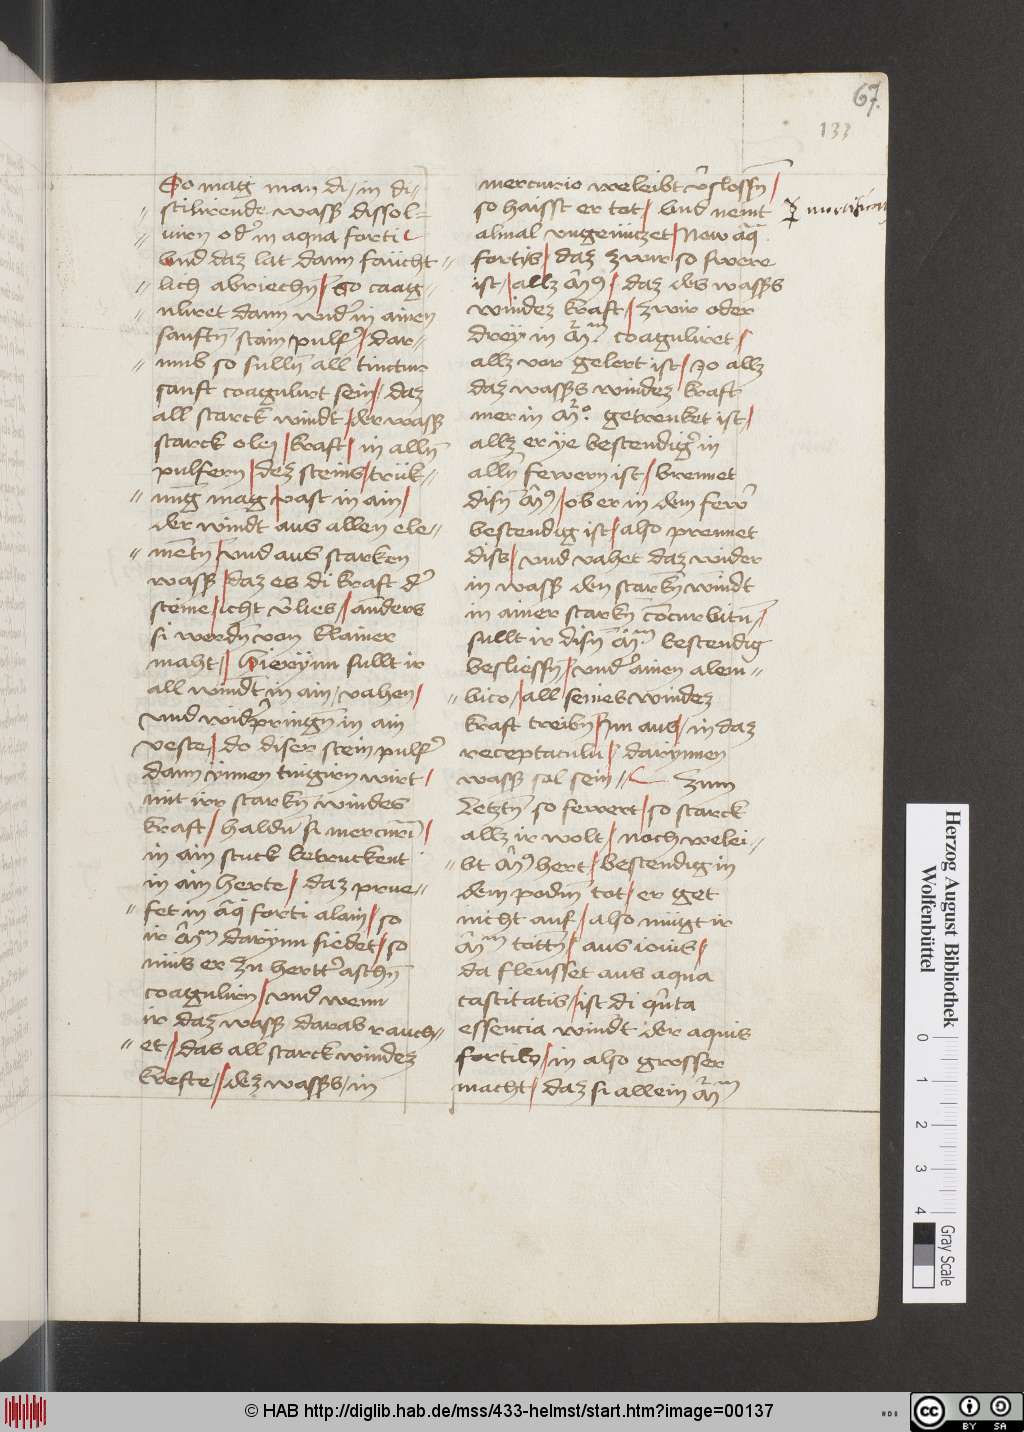 67.
133
So mag man di / in di-
stilirende wasser dissol=
uirn oder in aqua forti
vnd daz lat dann faücht
lich abriechn / So coag-
uliret dann vnder in ainen
sanftn stain pulfer / dar-
vmb so sulln all tinctur
sanft coagulirt sein / daz
all starck windt / der wasser
starck olen / kraft / in alln
pulfern / dez steins / trük-
nüg mag vast in ain /
der windt aus allen ele-
mētn / vnd aus starken
wasser / daz es di kraft der
steine / icht vlies / anders
si werdn von klainer
maht / hierynn sullt ir
all windt in ain / vahen /
vnd widpringn in ain
veste / do diser stein pulfer
dann ynnen tingirn wirt /
mit irr starkn windes
kraft / haldn si mercurii /
in ain stuck betruckent
in ain herte / daz prue-
fet in aq forti alain / so
ir darynn siedet / so
müs er zu hertter aschn
coagulirn / vnd wenn
ir daz wasser darab rauch-
et / das all starck windez
krefte / dez wassers / in
mercurio weleibt vslossn /
so haisst er tot / Vnd nemt
almal vngenüczet / New aq
fortis / daz zwir so swere
ist / allz / daz des wassers
windez kraft / zwir oder
drey in coaguliret /
allz vor gelert ist / So allz
daz wassers windez kraft
mer in getrenket ist /
allz er ye bestendiger in
alln fewern ist / brennet
disn / ob er in dem fewr
bestendig ist / also prennet
diss / vnd vahet daz wider
in wasser den starkn windt
in ainer starkn concurbitn /
sullt ir disn bestendig
besliessn / vnder ainen alem-
bico / all seines windez
kraft treibn / Im aus / in daz
receptaculu / darynnen
wasser sol sein / zum
Letztn so fewert / so starck
allz ir wolt / noch welei-
bt hert / bestendig in
dem podm tot / er get
nicht auf / also mügt ir
tottn / aus iouis /
da fleusset aus aqua
castitatis / ist di qinta
essencia windt der aquis
fortis / in also grosser
macht / daz si allein
Herzog August Bibliothek
Wolfenbüttel
0 1 2 3 4
Gray Scale
© HAB http://diglib.hab.de/mss/433-helmst/start.htm?image=00137
cc BY SA